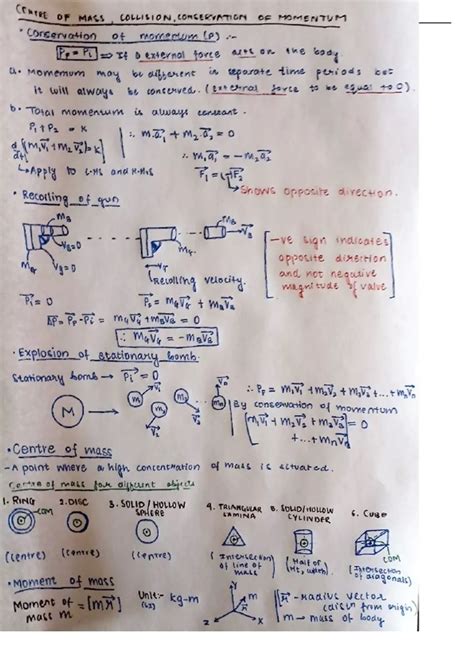 CENTRE OF MASS, COLLISION, CONSERVATION OF MOMENTUM
• Conservation of momentum (P) :-
Pf = Pi ⟹ If 0 external force acts on the body.
a. Momentum may be different in separate time periods but
it will always be conserved. (external force to be equal to 0).
b. Total momentum is always constant.
P1 + P2 = K
d/dt [m1v1 + m2v2 = K]
↳ Apply to L.H.S and R.H.S
∴ m1a1 + m2a2 = 0
∴ m1a1 = -m2a2
F1 = -F2
↳ Shows opposite direction.
• Recoiling of gun
mB
VB = 0
mG
VG = 0
mB
VB
mG
VG
↳ Recoiling velocity.
[-ve sign indicates
opposite direction
and not negative
magnitude of value]
Pi = 0
Pf = mGVG + mBVB
Pf = Pi = mGVG + mBVB = 0
∴ mGVG = -mBVB
• Explosion of stationary bomb.
Stationary bomb → Pi = 0
M
m1
V1
m2
V2
m3
V3
mn
Vn
∴ Pf = m1V1 + m2V2 + m3V3 + ... + mnVn
By conservation of momentum
[m1V1 + m2V2 + m3V3
+ ... + mnVn] = 0
• Centre of mass
- A point where a high concentration of mass is situated.
Centre of mass for different objects
1. RING
COM
(Centre)
2. DISC
(Centre)
3. SOLID / HOLLOW
SPHERE
(Centre)
4. TRIANGULAR
LAMINA
(Intersection
of line of
mass)
5. SOLID/HOLLOW
CYLINDER
(Half of
6. CUBE
COM
(Intersection
of diagonals)
• Moment of mass
Moment of
mass m = [mr]
Unit:- kg-m
Y
X
Z
m
r
r - radius vector
from origin)
m → mass of body